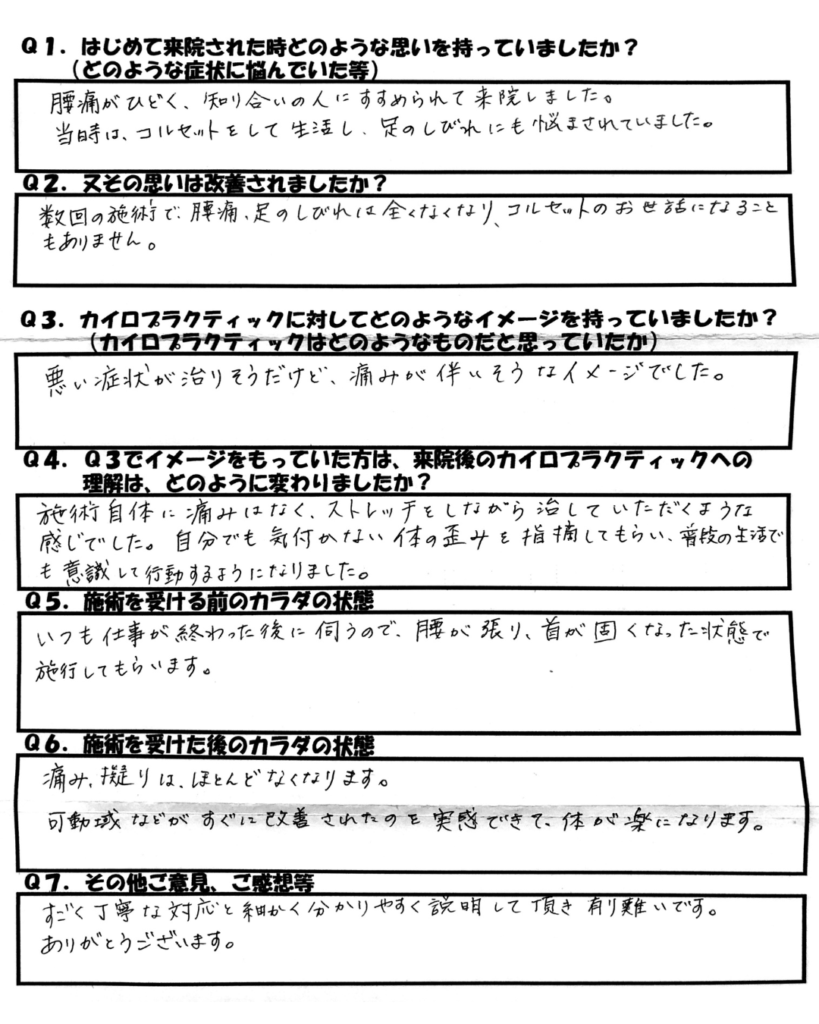 Q1．はじめて来院された時どのような思いを持っていましたか？
（どのような症状に悩んでいた等）
腰痛がひどく、知り合いの人にすすめられて来院しました。
当時は、コルセットをして生活し、足のしびれにも悩まされていました。
Q2．又その思いは改善されましたか？
数回の施術で、腰痛、足のしびれは全くなくなり、コルセットのお世話になること
もありません。
Q3．カイロプラクティックに対してどのようなイメージを持っていましたか？
（カイロプラクティックはどのようなものだと思っていたか）
悪い症状が治りそうだけど、痛みが伴いそうなイメージでした。
Q4．Q3でイメージをもっていた方は、来院後のカイロプラクティックへの
理解は、どのように変わりましたか？
施術自体に痛みはなく、ストレッチをしながら治していただくような
感じでした。自分でも気付かない体の歪みを指摘してもらい、普段の生活で
も意識して行動するようになりました。
Q5．施術を受ける前のカラダの状態
いつも仕事が終わった後に伺うので、腰が張り、首が固くなった状態で
施行してもらいます。
Q6．施術を受けた後のカラダの状態
痛み、擬りは、ほとんどなくなります。
可動域などがすぐに改善されたのを実感できて、体が楽になります。
Q7．その他ご意見、ご感想等
すごく丁寧な対応と細かく分かりやすく説明して頂き有り難いです。
ありがとうございます。